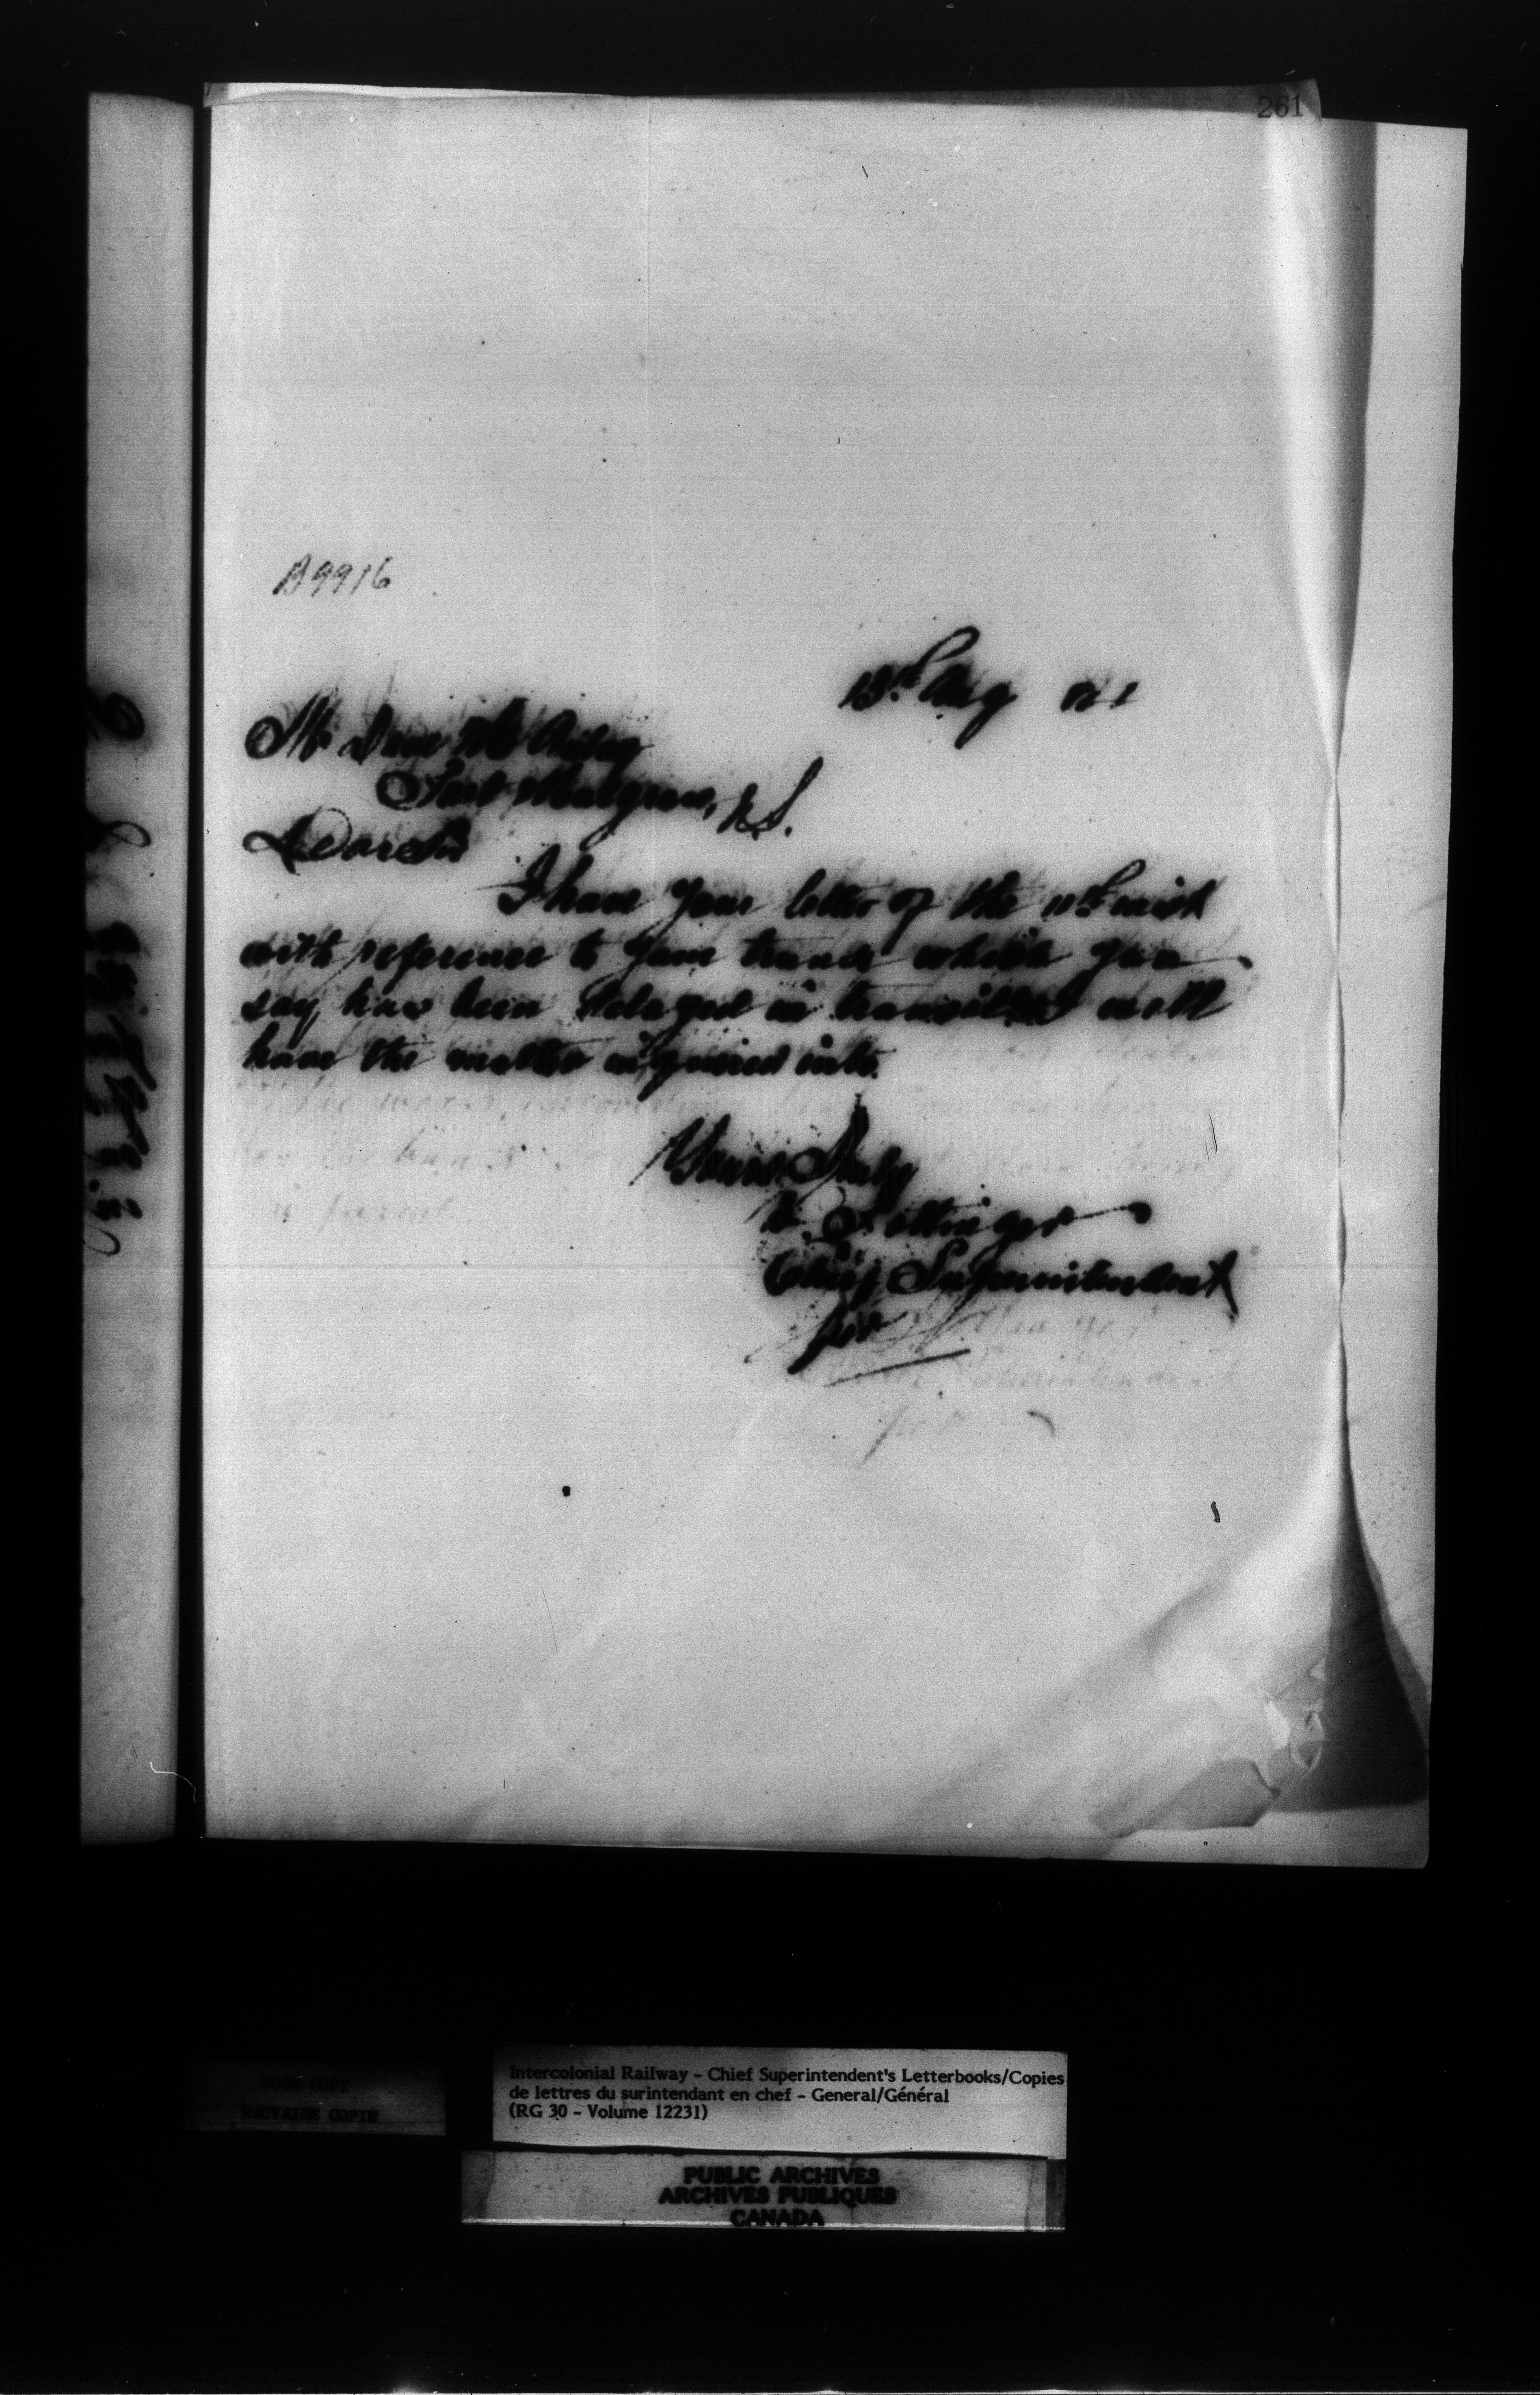 261
B9916
13th Aug
Mr
Port Mulgrave, N.S.
Dear Sir
I have your letter of the 11th inst
with reference to your trunk which you
say has been delayed in transit & I will
have the matter inquired into.
Yours Truly
D. Pottinger
Chief Superintendent
for
POOR COPY
MAUVAISE COPIE
Intercolonial Railway - Chief Superintendent's Letterbooks/Copies
de lettres du surintendant en chef - General/Général
(RG 30 - Volume 12231)
PUBLIC ARCHIVES
ARCHIVES PUBLIQUES
CANADA